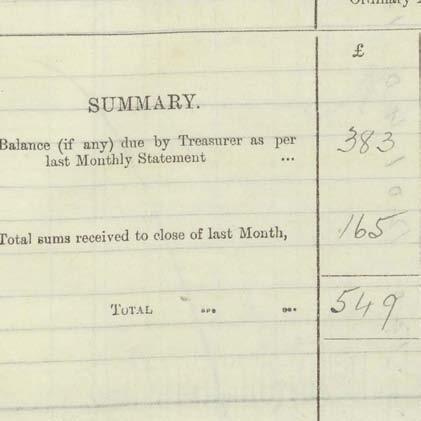 £
SUMMARY.
Balance (if any) due by Treasurer as per
last Monthly Statement ... 383
Total sums received to close of last Month, 165
TOTAL ... ... 549